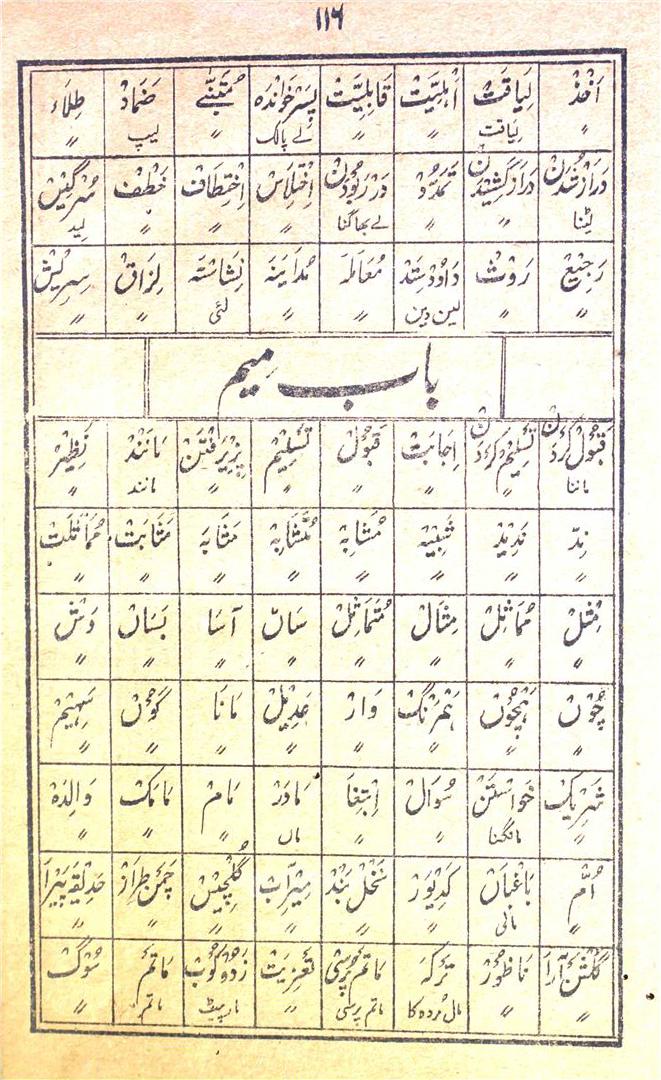 ۱۱۶
اَخْذْ لِیَاقَتْ اَہْلِیَّتْ قَابِلِیَّتْ پِسَرْخْوَانْدَہ مُتَبَنّٰے ضَمَادْ طِلَاء
〃 لیاقت 〃 〃 لے پالک 〃 لیپ 〃
دَرَازْشُدَنْ دَرَازْکَشِیْدَنْ تَمَدُّدْ دَرْرَبُوْدَنْ اِخْتِلَاسْ اِخْتِطَافْ خَطْفْ سَرْگِیْنْ
لیٹنا 〃 〃 لے بھاگنا 〃 〃 〃 لید
رَجِیْعْ رَوْثْ دَادْوسِتَدْ مُعَامَلَہ مُدَایَنَہ نِشَاسْتَہ لِزَاقْ سِرِیْشْ
〃 〃 لین دین 〃 〃 لئی 〃 〃
باب مِیم
قَبُوْل کَرْدَنْ تَسْلِیْم کَرْدَنْ اِجَابَتْ قَبُوْلْ تَسْلِیْمْ پِزِیْرَفْتَنْ مَانَنْدْ نَظِیْرْ
ماننا 〃 〃 〃 〃 〃 مانند 〃
نِدّ نَدِیْدْ شَبِیْہ مُشَابِہْ مُتَشَابِہْ مَثَابَہ مَثَابَتْ مُمَاثَلَتْ
〃 〃 〃 〃 〃 〃 〃 〃
مِثْلْ مُمَاثِلْ مِثَالْ مُتَمَاثِلْ سَانْ آسَا بَسَانْ وَشْ
〃 〃 〃 〃 〃 〃 〃 〃
چُوْنْ ہَمْچُوْنْ ہَمْرَنْگْ وَارْ عَدِیْلْ مَانَا گُوْنْ سَہِیْمْ
〃 〃 〃 〃 〃 〃 〃 〃
شَرِیْکْ خَوَاسْتَنْ سُوَالْ اِبْتِغَا مَادَرْ مَامْ مَامَکْ وَالِدَہ
〃 مانگنا 〃 〃 ماں 〃 〃 〃
اُمّْ بَاغْبَانْ کَدِیْوَرْ نَخْلْ بَنْدْ مِیْرَابْ گُلْچِیْنْ چَمَنْ طِرَازْ حَدِیْقَہ پَیْرَا
〃 مالی 〃 〃 〃 〃 〃 〃
گُلْشَنْ آرَا نَاطُوْرْ تَرْکَہ مَاتَمْ پُرْسِی تَعْزِیَتْ زَدْوکُوْبْ مَاتَمْ سُوْگْ
〃 〃 مال مُردہ کا ماتم پرسی 〃 مارپیٹ ماتم 〃